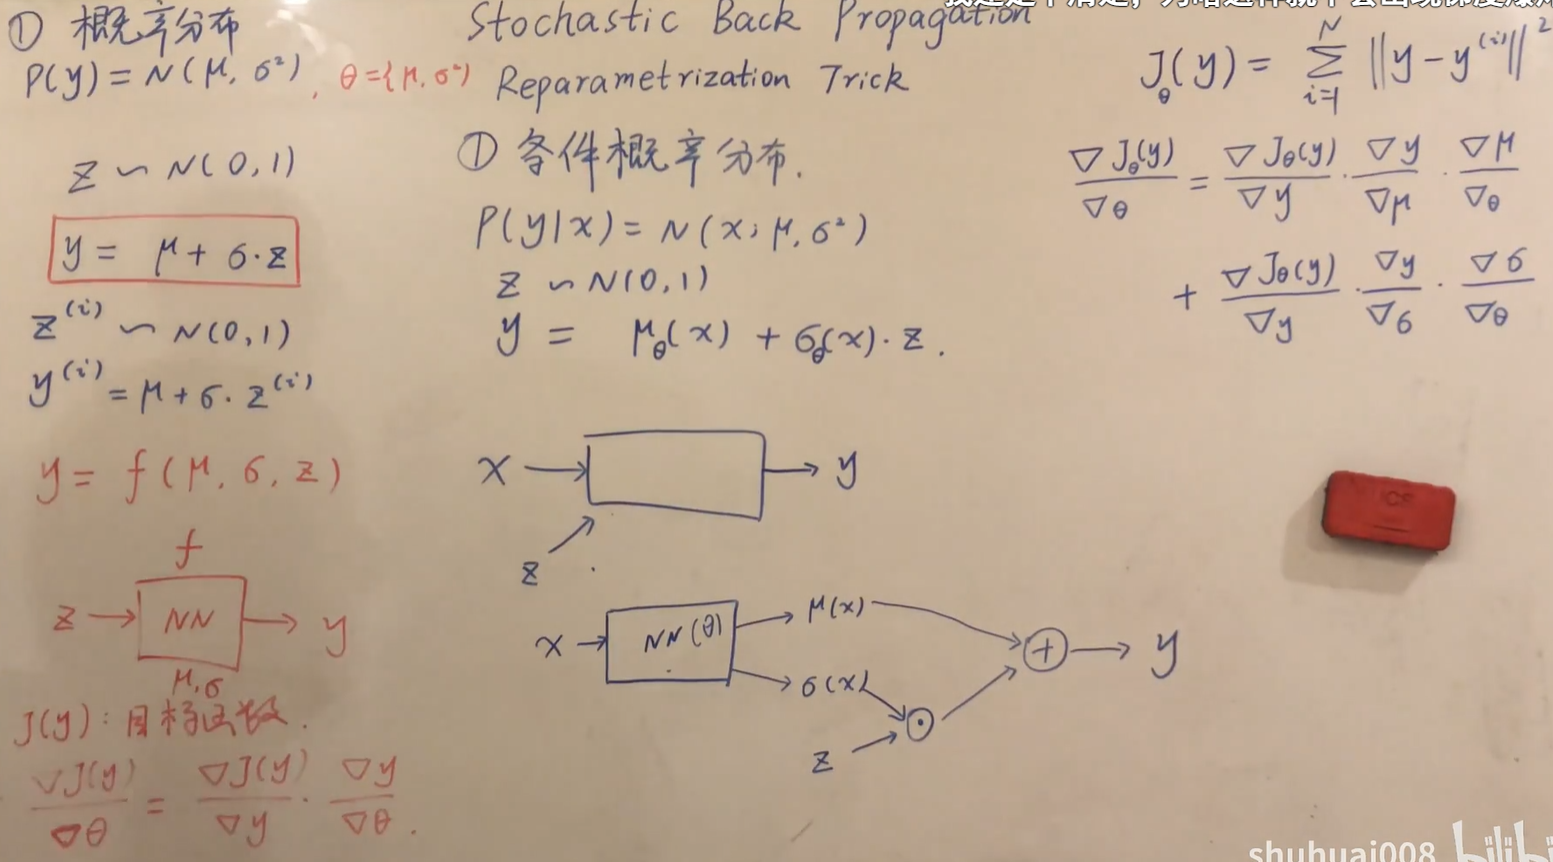 Stochastic Back Propagation
Reparametrization Trick
① 概率分布
P(y) = N(μ, σ²), θ={μ, σ²}
z ∽ N(0,1)
y = μ + σ·z
z⁽ⁱ⁾ ∽ N(0,1)
y⁽ⁱ⁾ = μ + σ· z⁽ⁱ⁾
y = f(μ, σ, z)
f
z → NN → y
μ,σ
J(y): 目标函数.
∇J(y)/∇θ = ∇J(y)/∇y · ∇y/∇θ .
① 条件概率分布.
P(y|x) = N(x; μ, σ²)
z ∽ N(0,1)
y = μ_θ(x) + σ_θ(x)· z .
x → y
z
x → NN(θ) → μ(x) + → y
σ(x) ⊙
z
J_θ(y) = ∑_{i=1}^{N} ||y − y⁽ⁱ⁾||²
∇J_θ(y)/∇θ = ∇J_θ(y)/∇y · ∇y/∇μ · ∇μ/∇θ
+ ∇J_θ(y)/∇y · ∇y/∇σ · ∇σ/∇θ
shuhuai008 bilibili